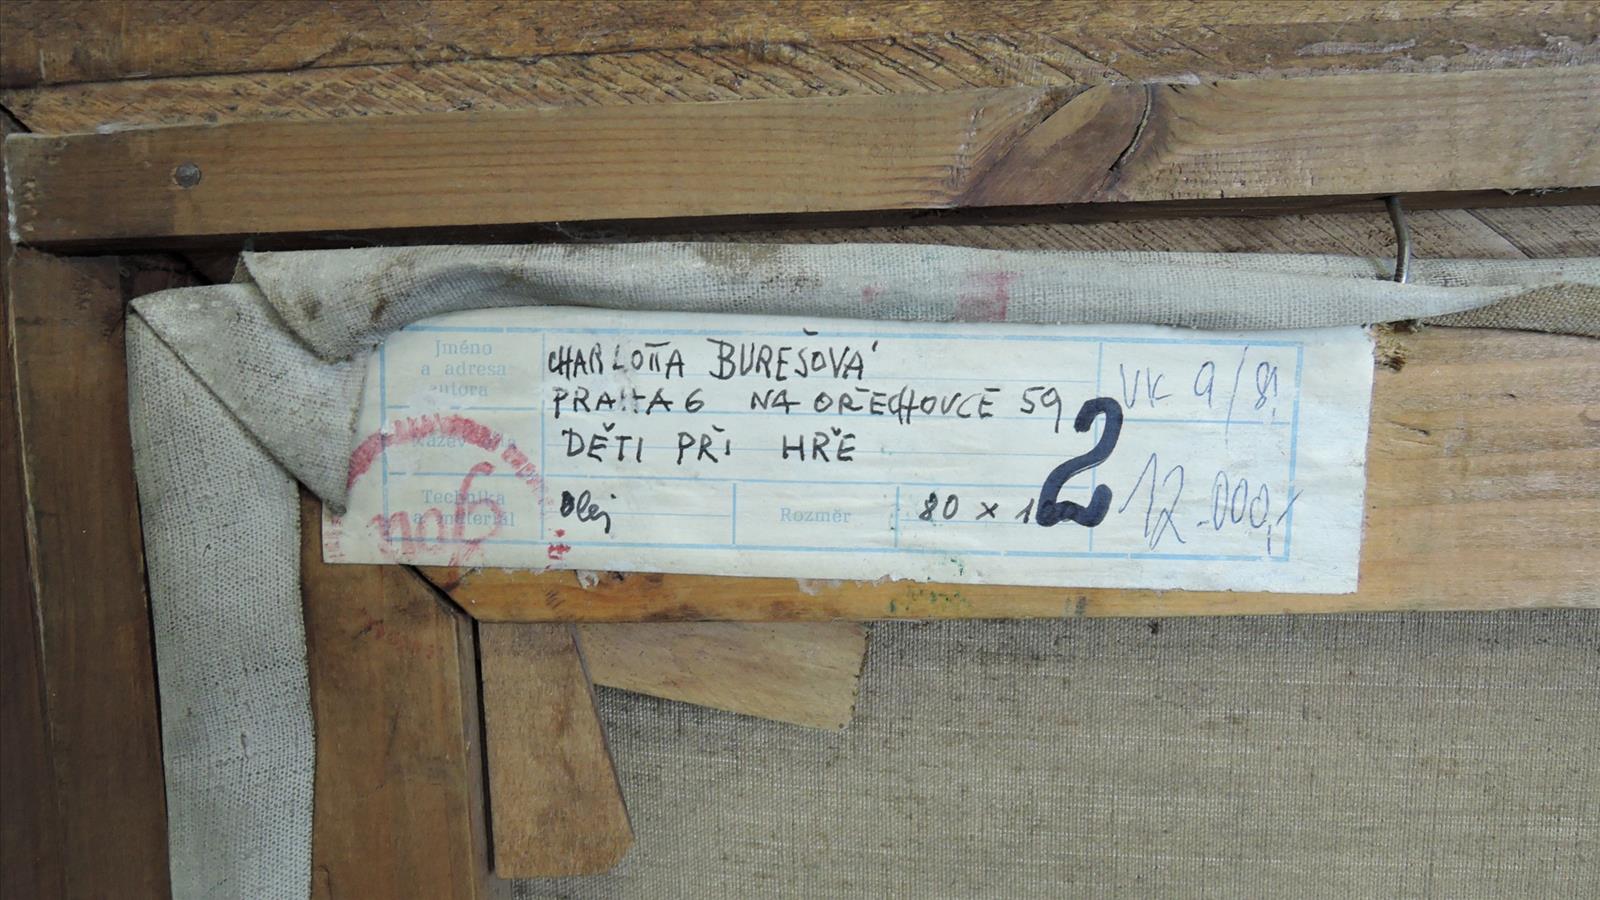 Jméno
a adresa
autora
CHARLOTTA BUREŠOVÁ
PRAHA 6 NA OŘECHOVCE 59
Název díla
DĚTI PŘI HŘE
Technika
a materiál
Olej
Rozměr
80 x
2
VK 9/81
12.000,-